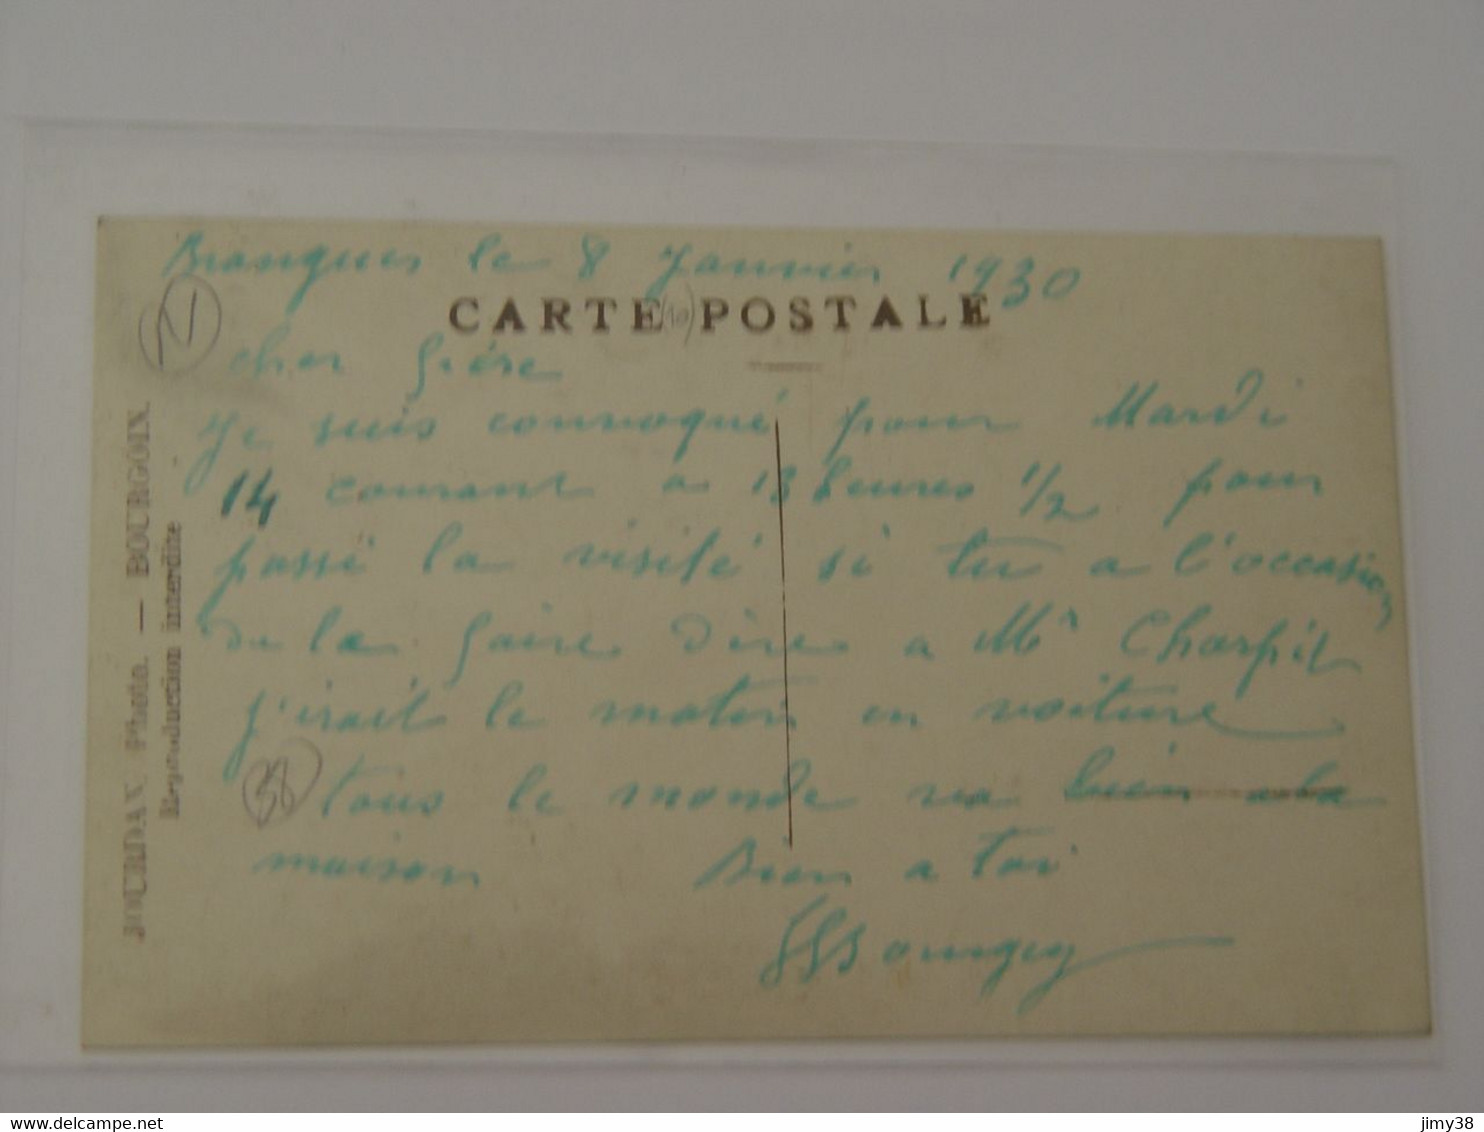 Brangues le 8 Janvier 1930
CARTE (10) POSTALE
cher frère
Je suis convoqué pour Mardi
14 courant a 13 heures 1/2 pour
passé la visité si tu a l'occasion
du la faire dire a Mr Charpit
j'irait le matin en voiture
tous le monde va bien a la
maison Bien a toi
JOURDAN, Photo. — BOURGOIN.
Reproduction interdite
38
delcampe.net
jimy38